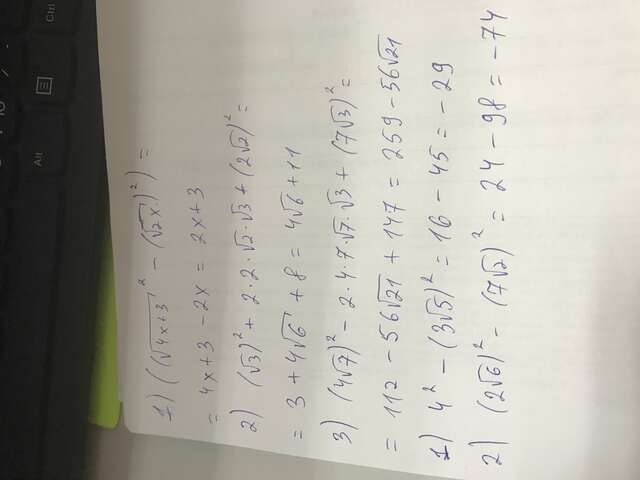 Alt
Ctrl
1) ((√4x+3)² - (√2x)²) =
= 4x+3 - 2x = 2x+3
2) (√3)² + 2·2·√2·√3 + (2√2)² =
= 3 + 4√6 + 8 = 4√6 + 11
3) (4√7)² - 2·4·7·√7·√3 + (7√3)² =
= 112 - 56√21 + 147 = 259 - 56√21
1) 4² - (3√5)² = 16 - 45 = -29
2) (2√6)² - (7√2)² = 24 - 98 = -74